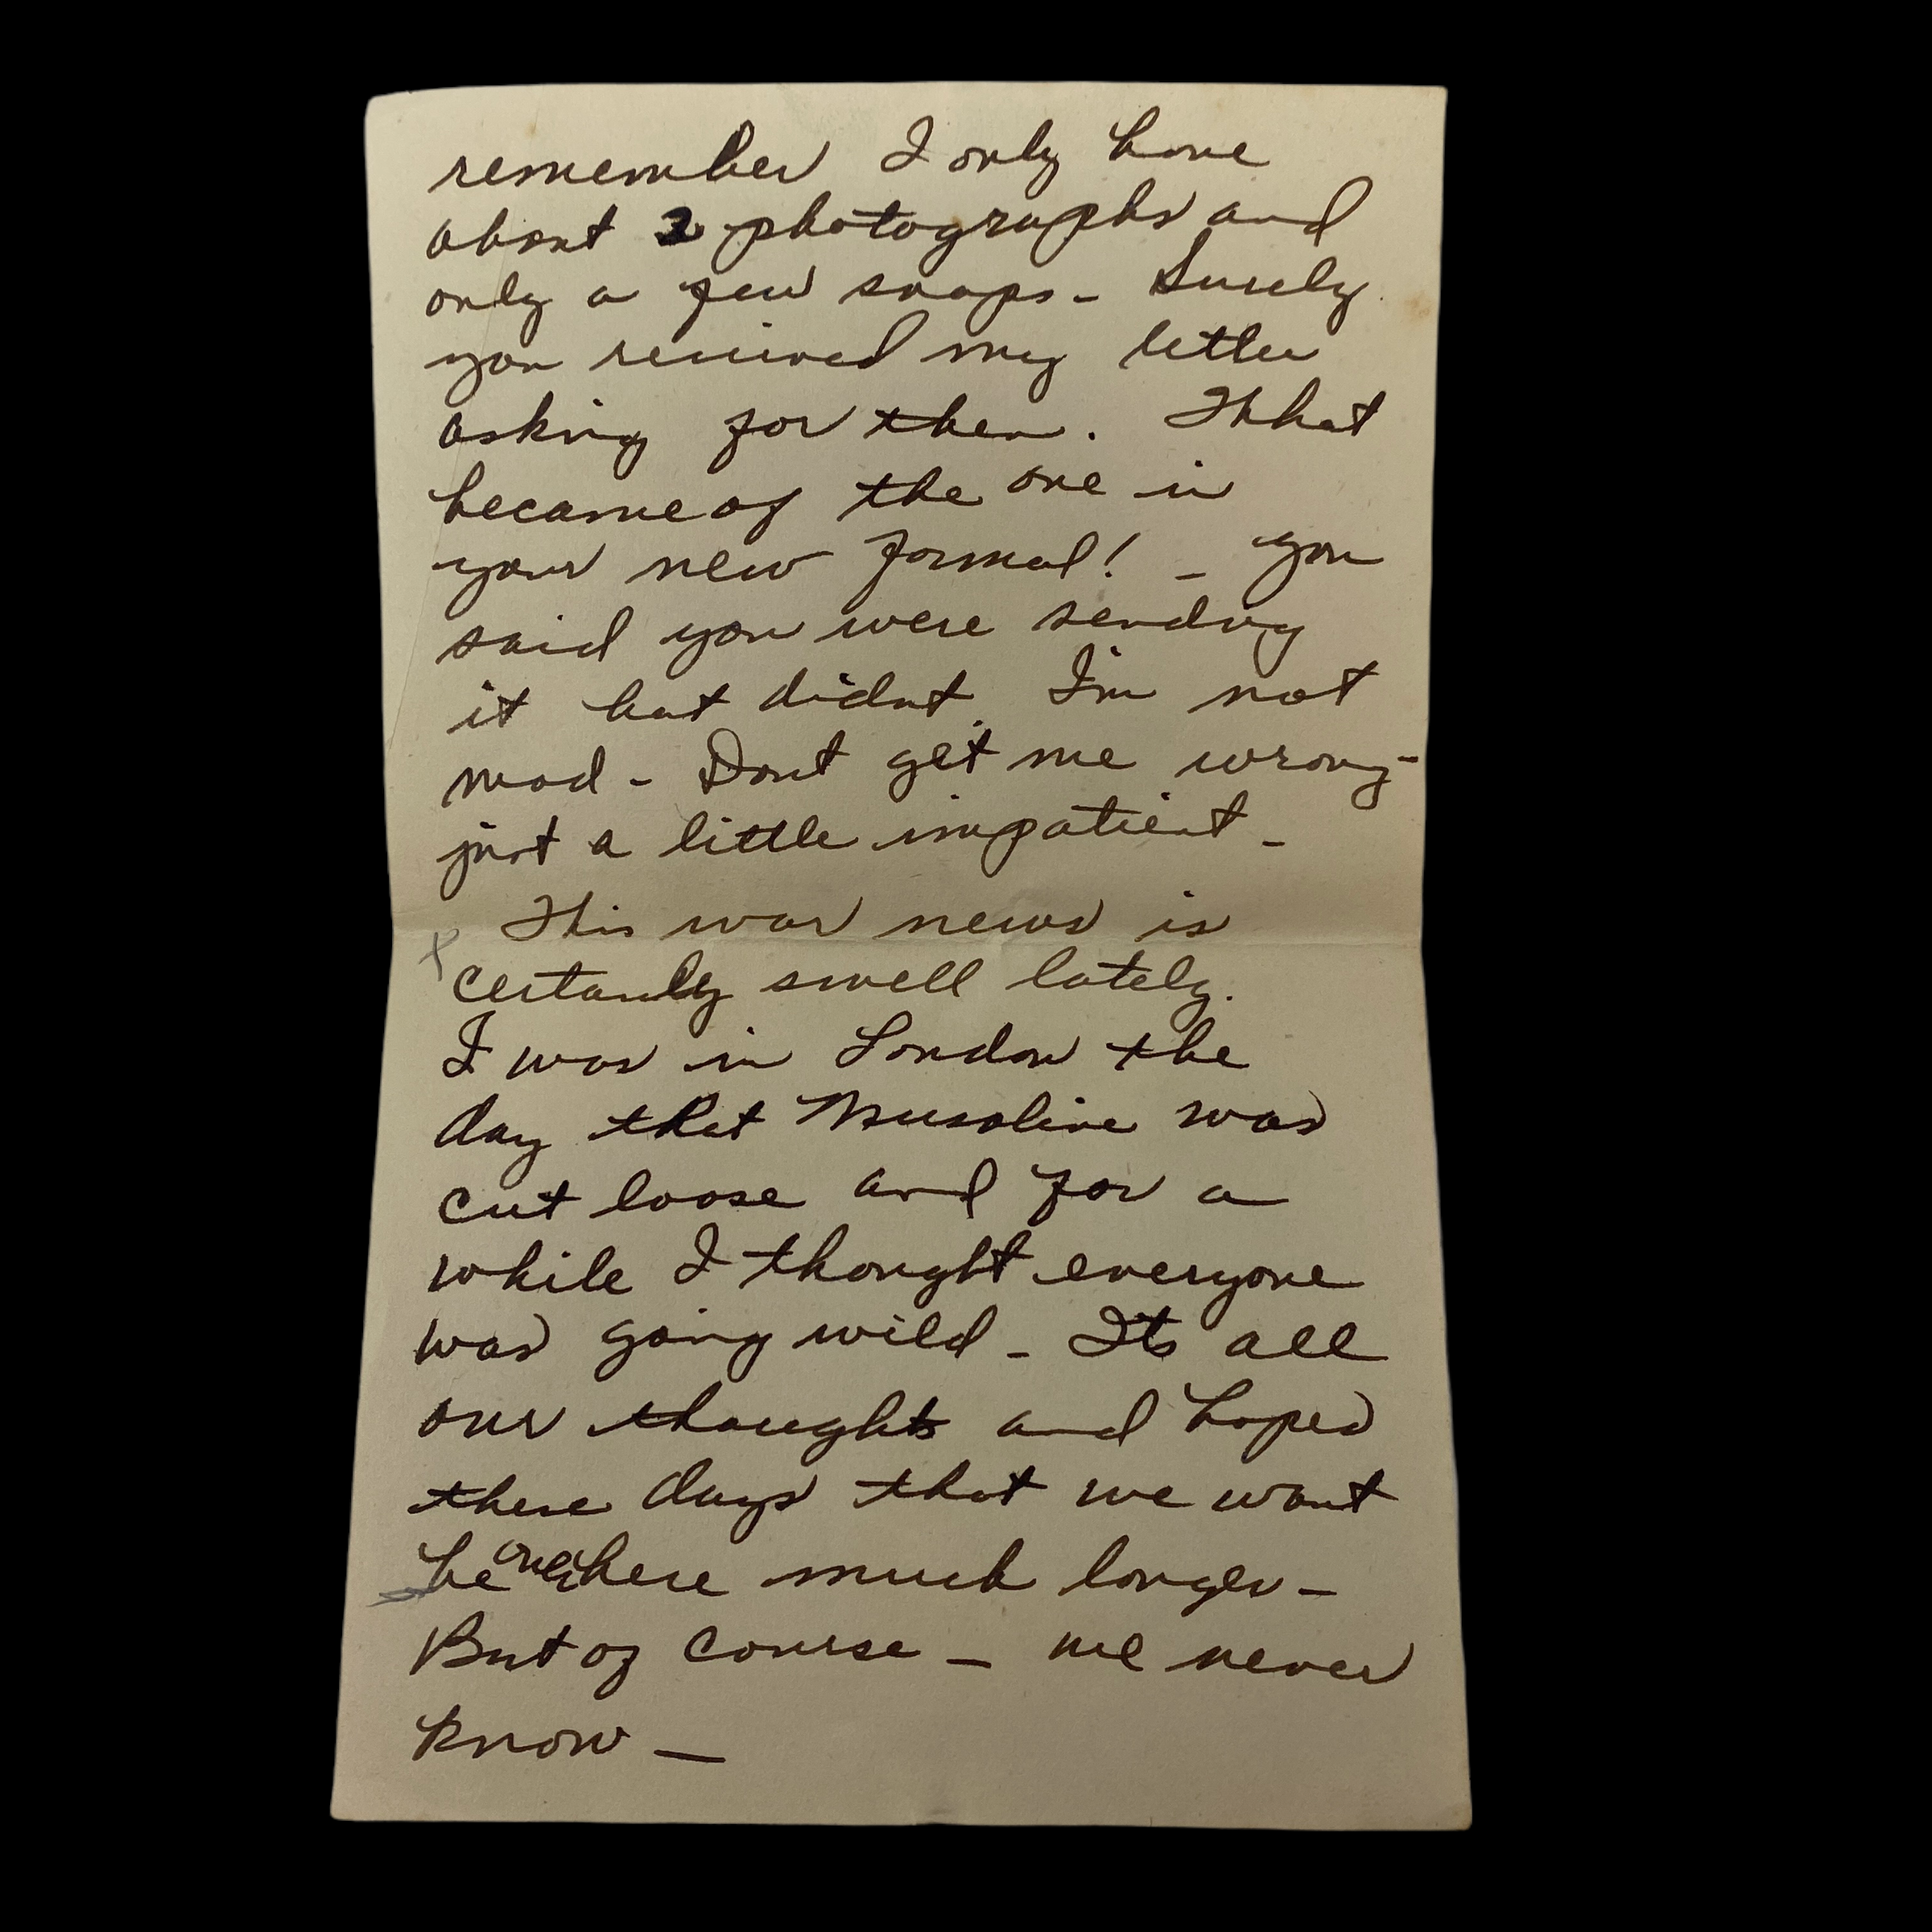 remember I only have
about 2 photographs and
only a few snaps - Surely
you received my letter
asking for them. What
became of the one in
your new formal! - you
said you were sending
it but didnt. I'm not
mad - Dont get me wrong -
just a little impatient -
This war news is
certainly swell lately.
I was in London the
day that Musoline was
cut loose and for a
while I thought everyone
was going wild - Its all
our thoughts and hopes
these days that we wont
be over here much longer -
But of course - we never
know -